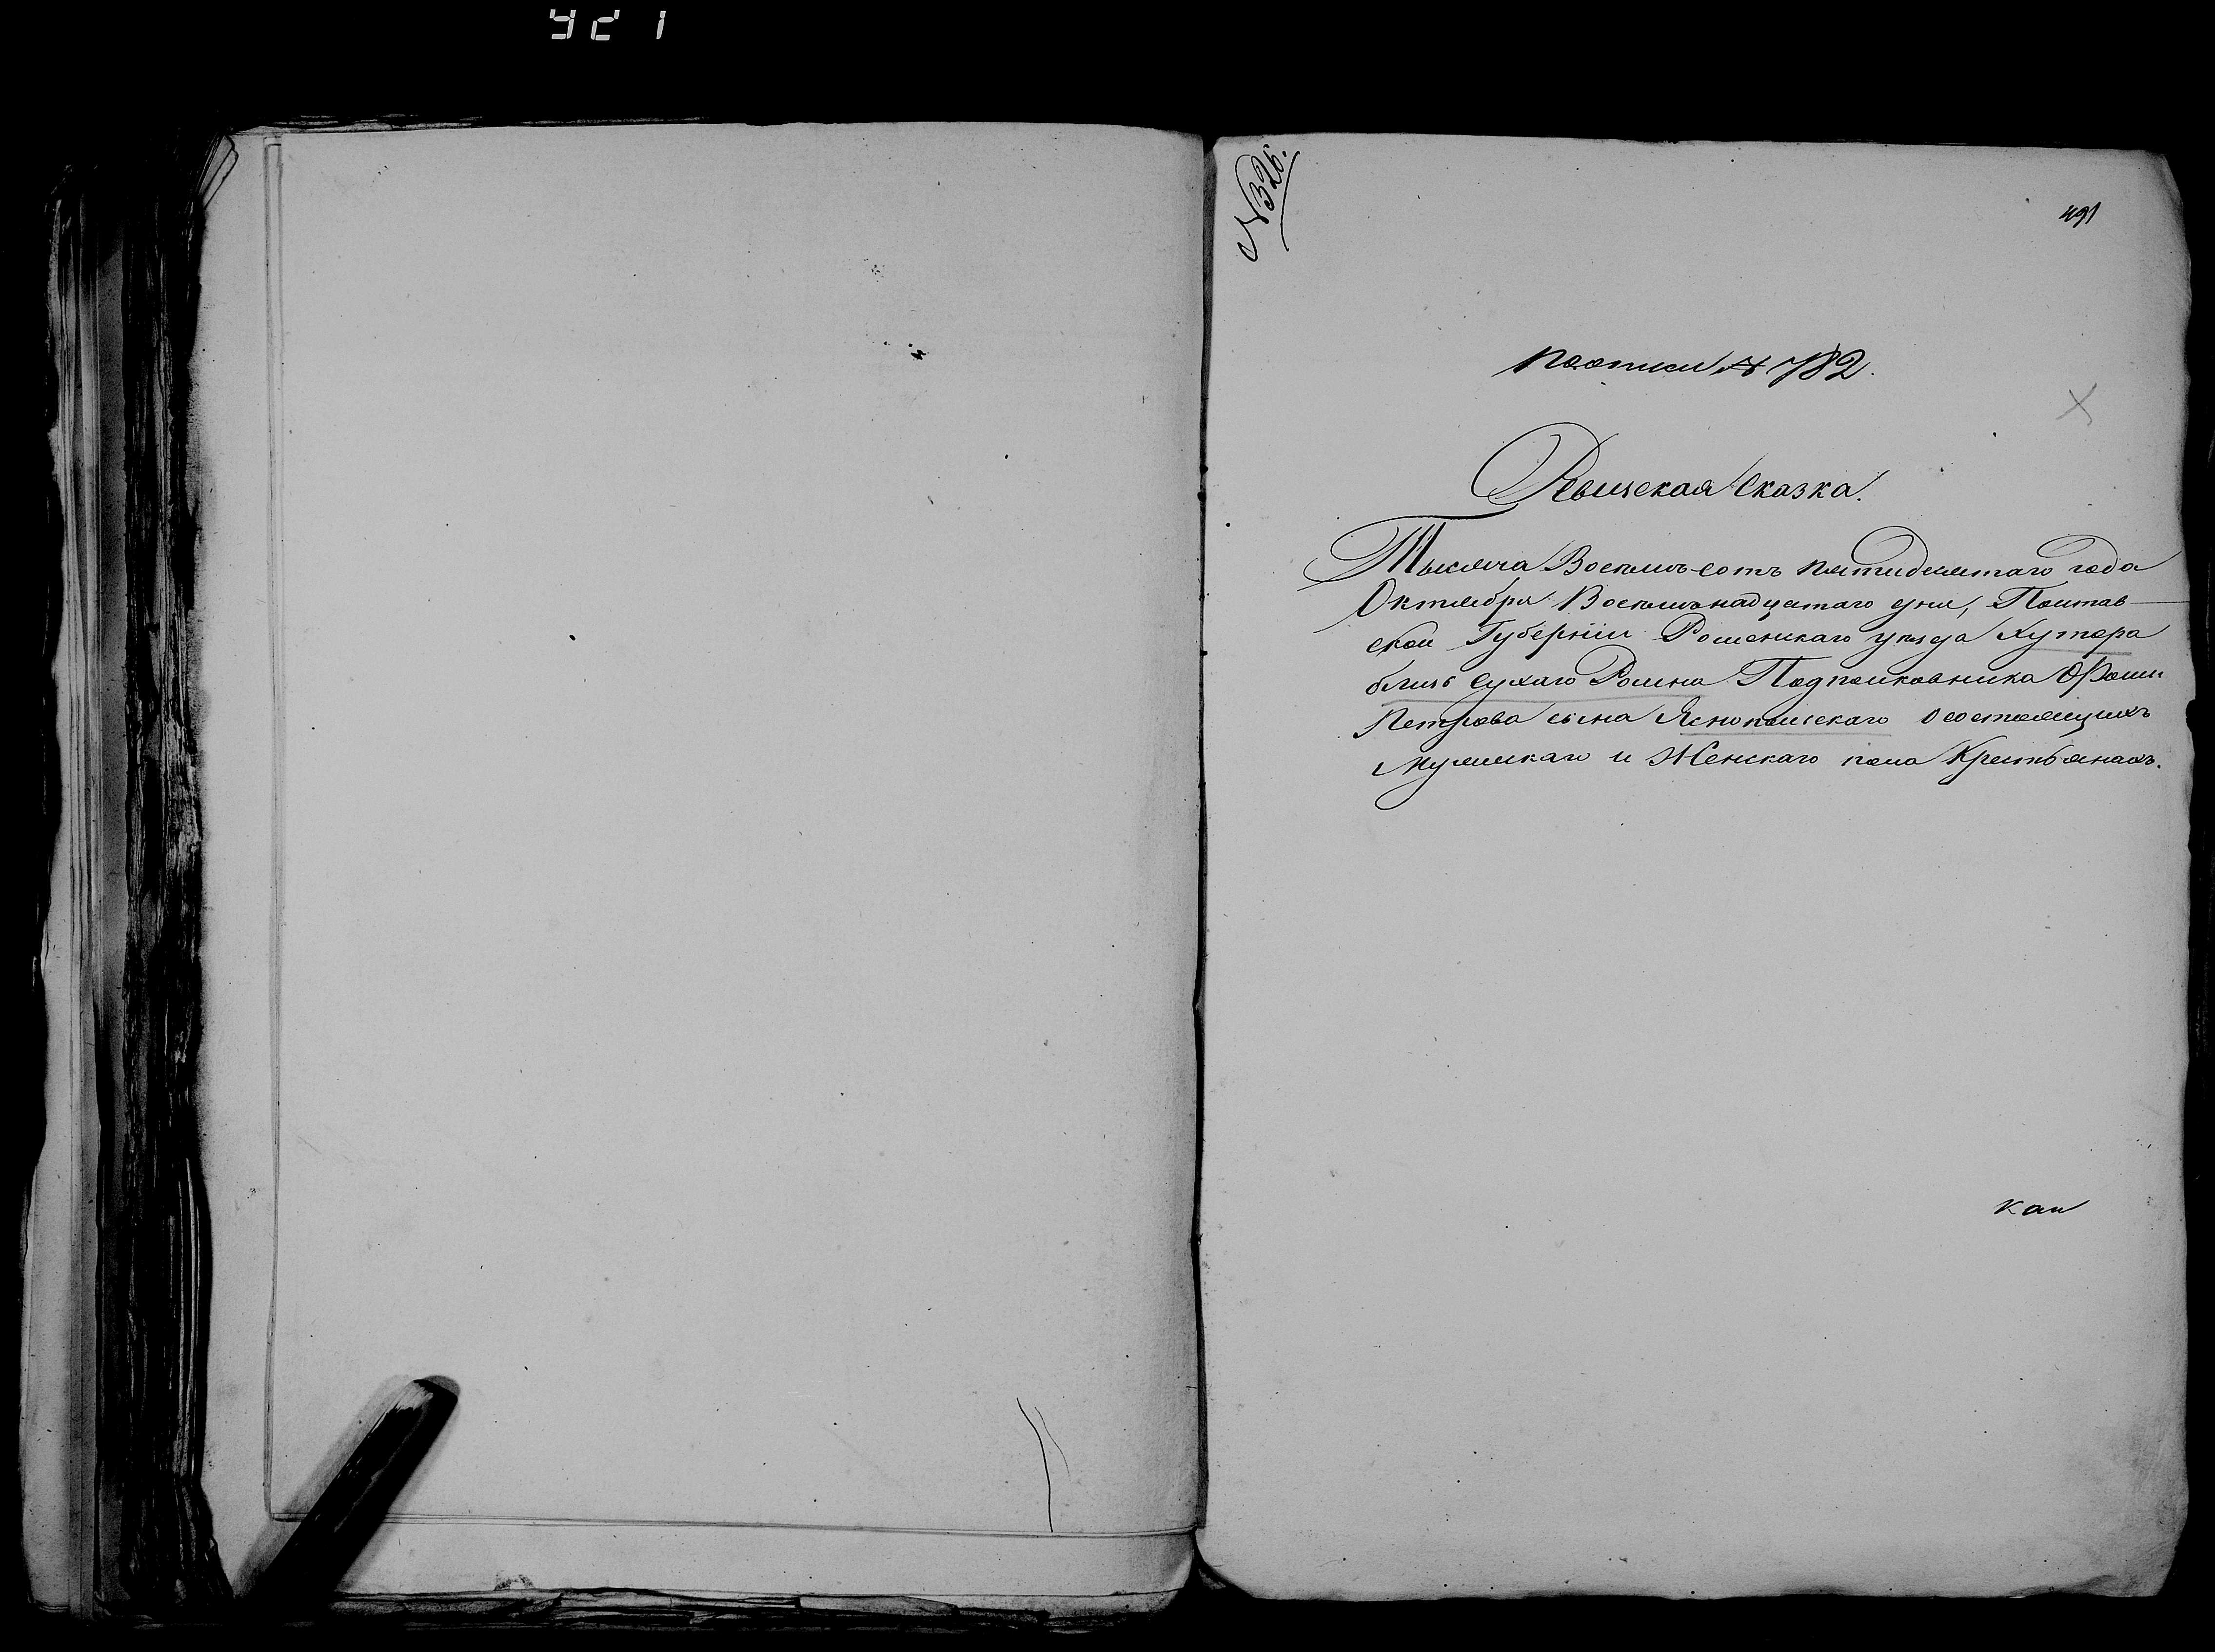 421
№ 326.
491
по описи № 782.
Ревизская Сказка.
Тысяча Восемь-сотъ пятидесятаго года
Октября Восемьнадцатаго дня, Полтав-
ской Губерніи Роменскаго уѣзда Хутора
близь Сухаго Ромна Подполковника Фомы
Петрова сына Яснопольскаго о состоящихъ
Мужескаго и Женскаго пола Крестьянахъ.